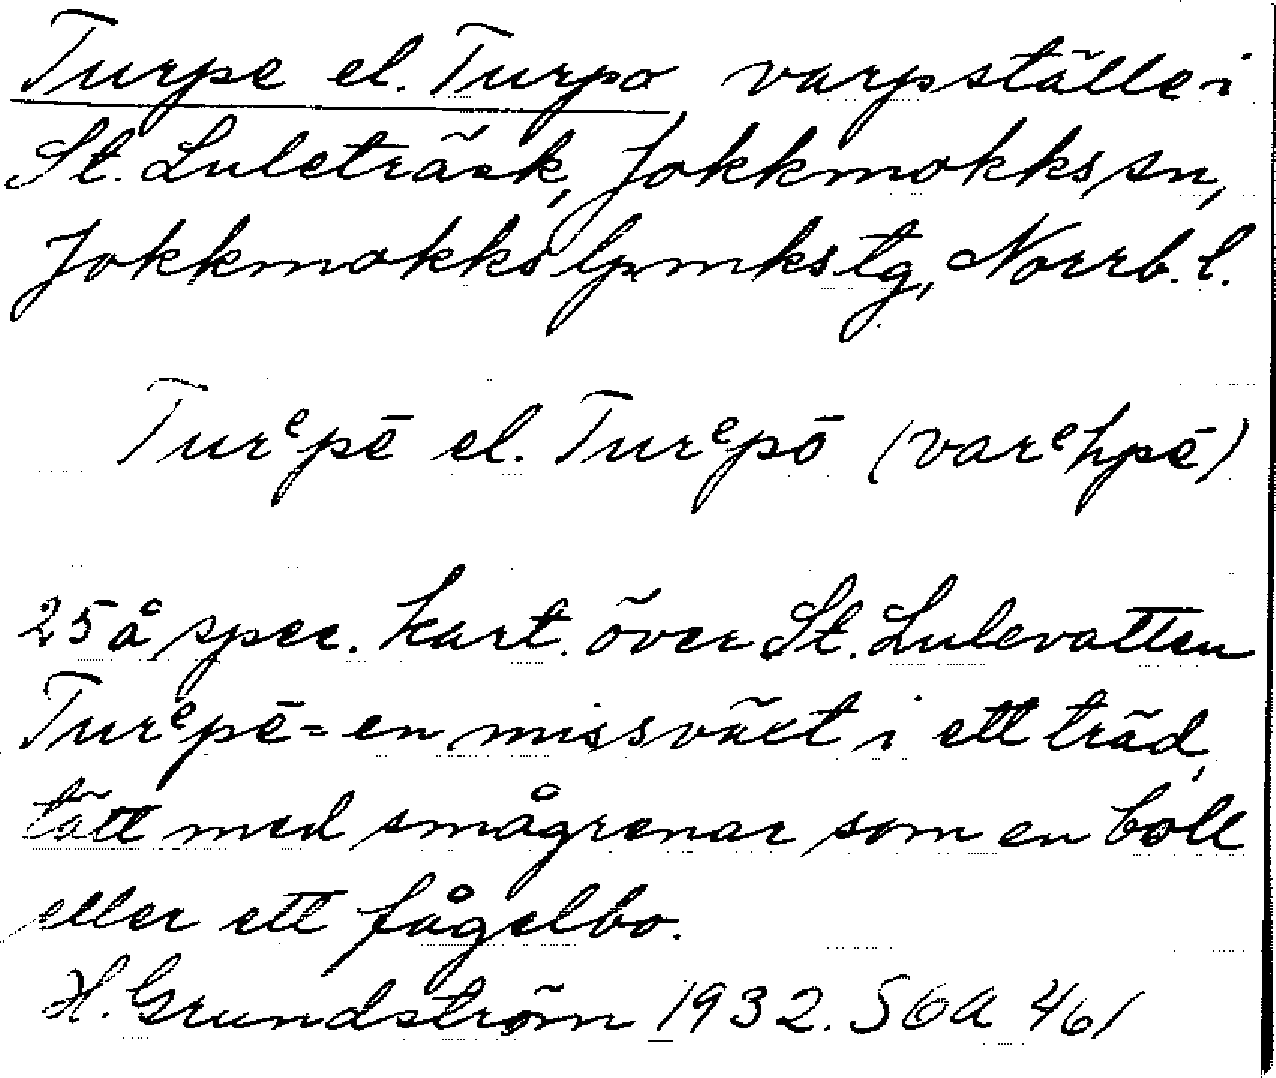 Turpe el. Turpo varpställe i
St. Luleträsk, Jokkmokks sn,
Jokkmokks lpmks tg, Norrb. l.
Turᵉpē el. Turᵉpō (varᵉhpē)
25 å spec. kart. över St. Lulevatten
Turᵉpē = en missväxt i ett träd,
tätt med smågrenar som en boll
eller ett fågelbo.
H. Grundström 1932. SOA 461